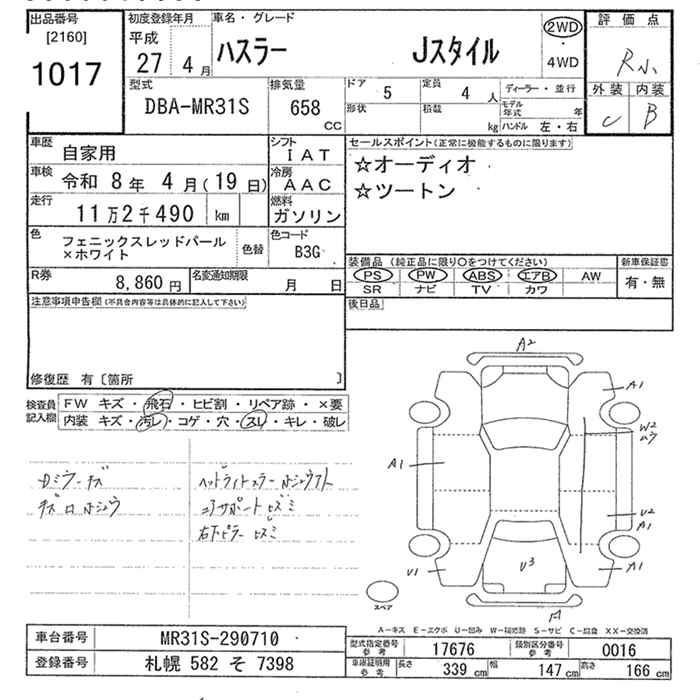 出品番号
[2160]
1017
初度登録年月
平成
27 4 月
車名・グレード
ハスラー Jスタイル
2WD
・
4WD
評価点
R小
外装 内装
C B
型式
DBA-MR31S
排気量
658
CC
ドア 5
定員 4 人
ディーラー・並行
形状
積載 kg
モデル年式 年
ハンドル 左・右
車歴 自家用
シフト IAT
車検 令和 8 年 4 月(19 日)
冷房 AAC
走行 11 万 2 千 490 km
燃料 ガソリン
色 フェニックスレッドパール
×ホワイト
色替
色コード
B3G
R券 8,860 円
名変通知期限 月 日
セールスポイント(正常に機能するものに限ります)
☆オーディオ
☆ツートン
装備品 (純正品に限り〇をつけてください)
新車保証書
PS PW ABS エアB AW
SR ナビ TV カワ
有・無
後日品
注意事項申告欄(不具合内容等は具体的に記入して下さい)
修復歴 有〔箇所 〕
検査員
記入欄
FW キズ・飛石・ヒビ割・リペア跡・×要
内装 キズ・汚レ・コゲ・穴・スレ・キレ・破レ
ヘッドライトスラー
コアサポート ヒズミ
右下ピラー ヒズミ
A2
A1
A1
W2
ムラ
U2
A1
A1
U1
U3
A
スペア
A-キズ E-エクボ U-凹み W-補修跡 S-サビ C-腐食 XX-交換済
車台番号 MR31S-290710
登録番号 札幌 582 そ 7398
型式指定番号
参考
17676
類別区分番号
参考
0016
車庫証明用
参考
長さ 339 cm
幅 147 cm
高さ 166 cm